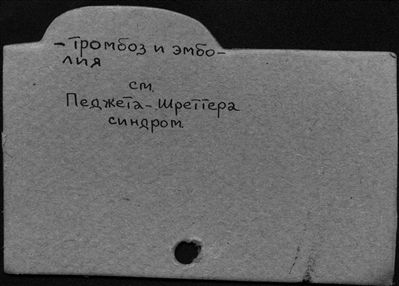 - Тромбоз и эмбо-
лия
см.
Педжета-Шреттера
синдром.